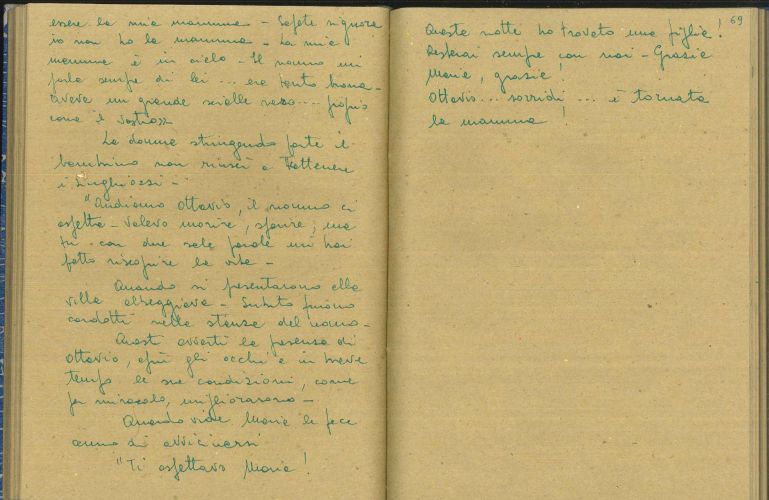 essere la mia mamma - Sapete signora
io non ho la mamma - La mia
mamma è in cielo - Il nonno mi
parla sempre di lei ... era tanto buona -
aveva un grande scialle nero .... proprio
come il vostro»
La donna stringendo forte il
bambino non riuscì a trattenere
i singhiozzi -
"Andiamo Ottavio, il nonno ci
aspetta - Volevo morire, sparire, ma
tu - con due sole parole mi hai
fatto riscoprire la vita -
Quando si presentarono alla
villa albeggiava - Subito furono
condotti nella stanza del nonno -
Questi avvertì la presenza di
Ottavio, aprì gli occhi e in breve
tempo le sue condizioni, come
per miracolo, migliorarono -
Quando vide Maria le fece
cenno di avvicinarsi
"Ti aspettavo Maria!
69
Questa notte ho trovato una figlia!
Resterai sempre con noi - Grazie
Maria, grazie!
Ottavio... sorridi ... è tornata
la mamma!